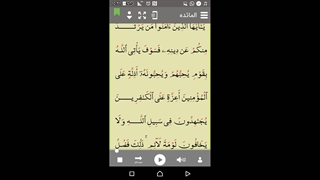 المائدة
يَٰٓأَيُّهَا ٱلَّذِينَ ءَامَنُوا۟ مَن يَرْتَدَّ
مِنكُمْ عَن دِينِهِۦ فَسَوْفَ يَأْتِى ٱللَّهُ
بِقَوْمٍۢ يُحِبُّهُمْ وَيُحِبُّونَهُۥٓ أَذِلَّةٍ عَلَى
ٱلْمُؤْمِنِينَ أَعِزَّةٍ عَلَى ٱلْكَٰفِرِينَ
يُجَٰهِدُونَ فِى سَبِيلِ ٱللَّهِ وَلَا
يَخَافُونَ لَوْمَةَ لَآئِمٍۢ ۚ ذَٰلِكَ فَضْلُ